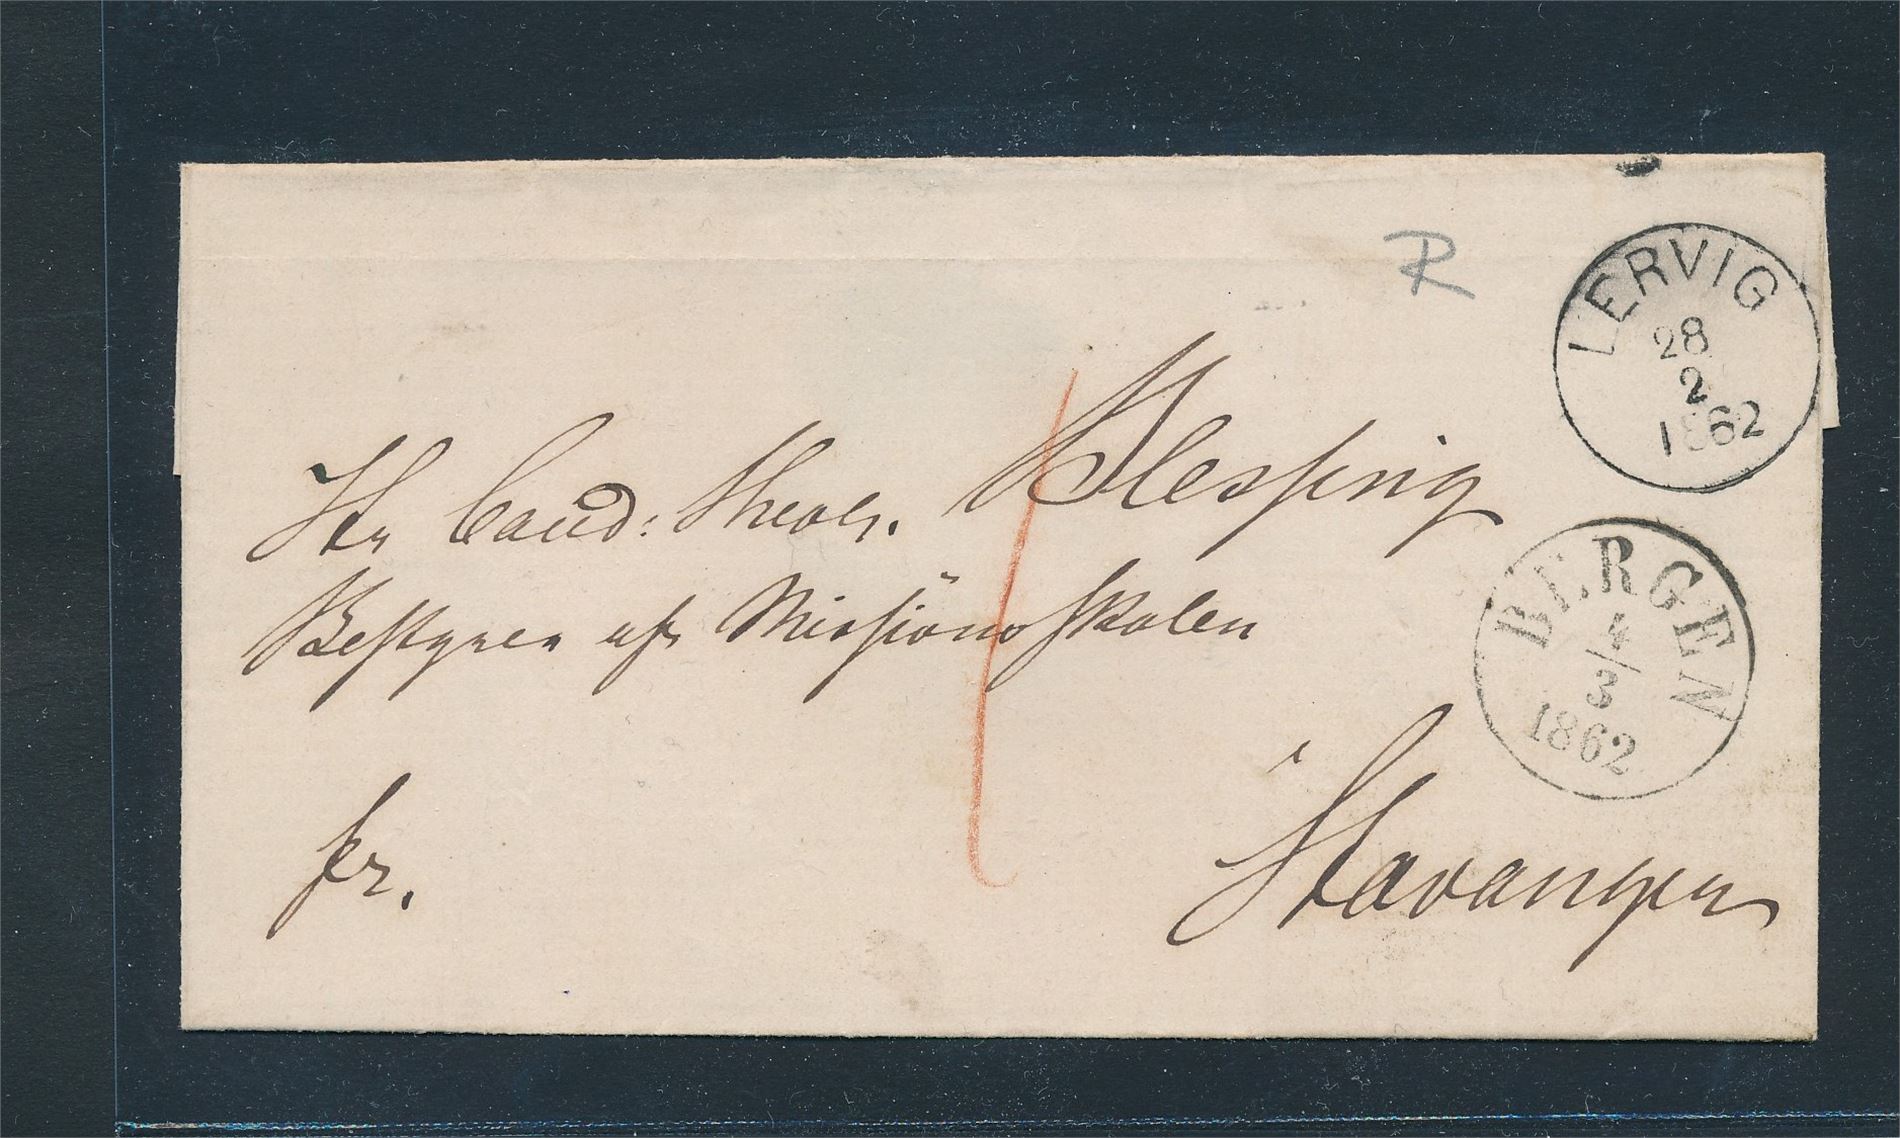 R
LERVIG
28
2
1862
Hr Cand: Theol. Blessing
BERGEN
4/3
1862
Bestyrer af Missionsskolen
i
Stavanger
fr.